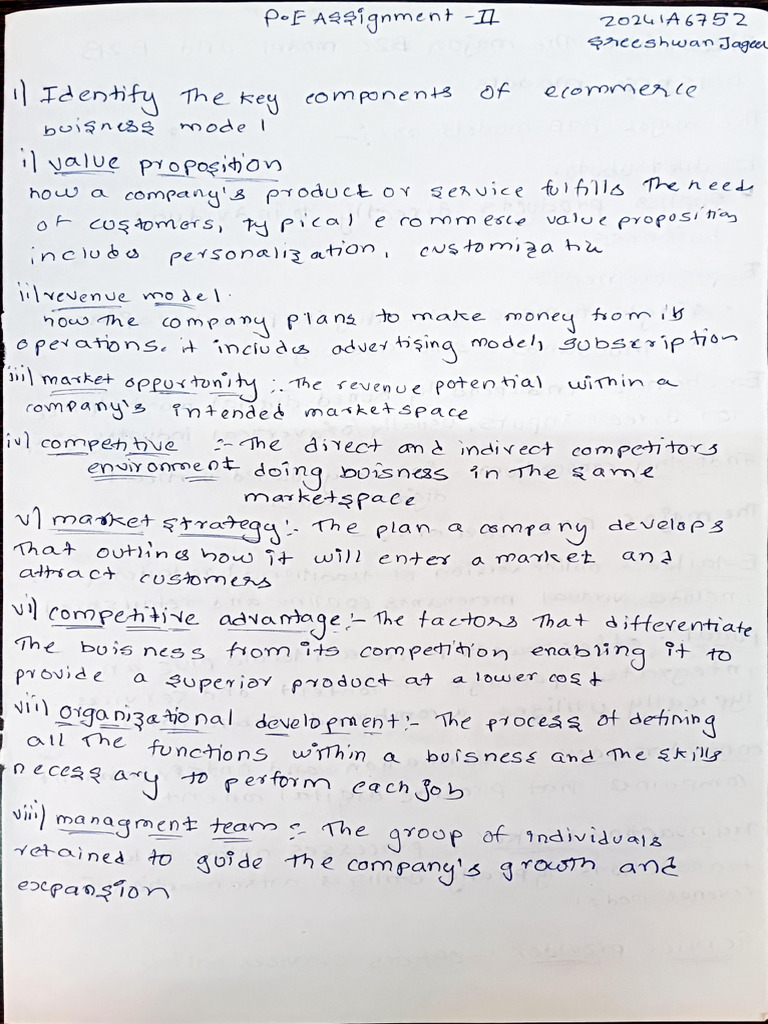 P.E Assignment - II 20241A6752
Sreeshwan Jageer
1) Identify The key components of ecommerce
buisness model
i) value proposition
how a company's product or service fulfills The need
of customers, typical e commerce value proposition
includes personalization, customization
ii) revenue model.
how The company plans to make money from its
operations. it includes advertising model, subscription
iii) market oppurtonity :- The revenue potential within a
company's intended marketspace
iv) competitive :- The direct and indirect competitors
environment doing buisness in The same
marketspace
v) market strategy :- The plan a company develops
That outlines how it will enter a market and
attract customers
vi) competitive advantage :- The factors That differentiate
The buisness from its competition enabling it to
provide a superior product at a lower cost
vii) organizational development :- The process of defining
all The functions within a buisness and The skills
necessary to perform each job
viii) managment team :- The group of individuals
retained to guide the company's growth and
expansion